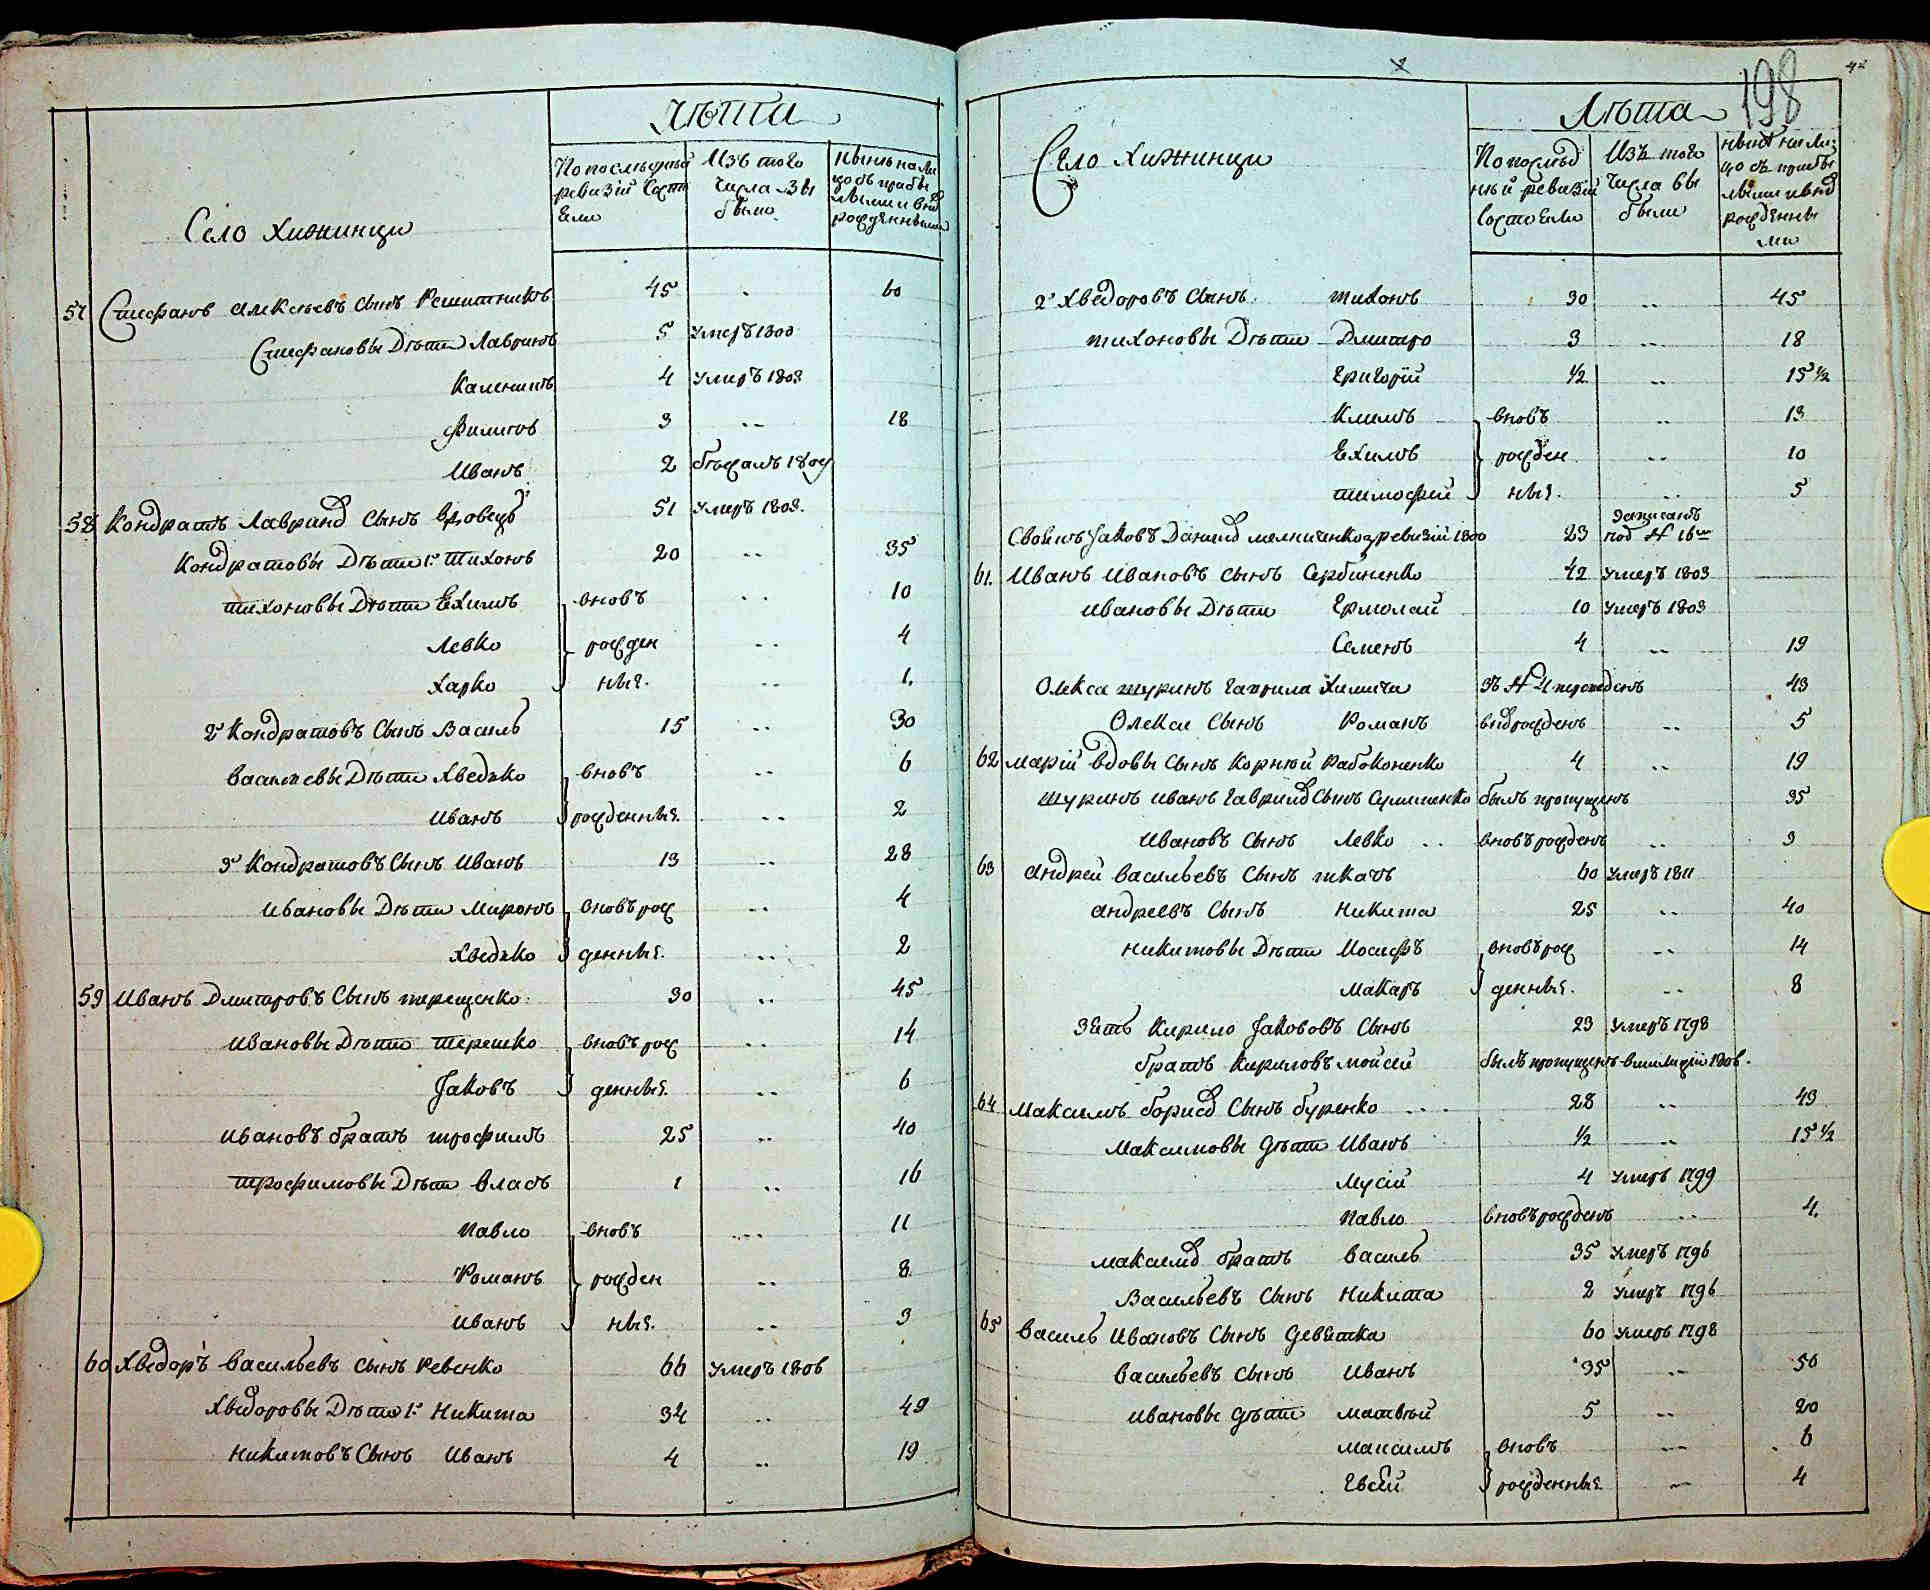 Лѣта
По последней Изъ того Нынѣ на ли
ревизіи состо числа вы цо съ прибы
яли было лыми и внов
рожденными
Село Хижинци
57 Стефанъ Алексѣевъ сынъ Решетникъ 45 . 60
Стефановы дѣти Лавринъ 5 умеръ 1803
Каленикъ 4 умеръ 1803
Филипъ 3 .. 18
Иванъ 2 бѣжалъ
58 Кондратъ Лаврінов сынъ Вдовецъ 51 умеръ 1808.
Кондратовы дѣти 1й Тихонъ 20 .. 35
Тихоновы дѣти Ехимъ вновь .. 10
Левко рожден .. 4
Харко ныя. .. 1.
2й Кондратовъ сынъ Василь 15 .. 30
Васильевы дѣти Хведько вновь .. 6
Иванъ рожденныя. .. 2
3й Кондратовъ сынъ Иванъ 13 .. 28
Ивановы дѣти Миронъ вновь рож .. 4
Хведько денныя. .. 2
59 Иванъ Дмитровъ сынъ Терещенко 30 .. 45
Ивановы дѣти Терешко вновь рож .. 14
Јаковъ денныя. .. 6
Ивановъ братъ Трофимъ 25 .. 40
Трофимовы дѣти Власъ 1 .. 16
Павло вновь .. 11
Романъ рожден .. 8
Иванъ ныя. .. 3
60 Хведоръ Васильевъ сынъ Ревенко 66 умеръ 1806
Хведоровы дѣти 1й Никита 34 .. 49
Никитовъ сынъ Иванъ 4 .. 19
42
198
Лѣта
Село Хижинци
По послѣд Изъ того нынѣ на ли
ней ревизіи числа вы цо съ прибы
состояли были лыми и внов
рожденны
ми
2й Хведоровъ сынъ Тихонъ 30 .. 45
Тихоновы дѣти Дмитро 3 .. 18
Григорій ½ .. 15 ½
Климъ вновь .. 13
Ехимъ рожден .. 10
Тимофей ныя. .. 5
записанъ
Своякъ Јаковъ Данилов Мелниченко ревизіи 1800 23 под № 16м
61. Иванъ Ивановъ сынъ Сербиненко 42 умеръ 1803
Ивановы дѣти Ермолай 10 умеръ 1803
Семенъ 4 .. 19
Олекса шуринъ Гаврила Химича зъ № 4 переведенъ 43
Олексы сынъ Романъ внов рожденъ .. 5
62 Марій вдовы сынъ Корнѣй Рабоконенко 4 .. 19
шуринъ Иванъ Гаврилов сынъ былъ пропущенъ 35
Ивановъ сынъ Левко .. вновь рожденъ .. 3
63 Андрей Васильевъ сынъ Ткачъ 60 умеръ 1811
Андреевъ сынъ Никита 25 .. 40
Никитовы дѣти Иосифъ вновь рож .. 14
Макаръ денныя. .. 8
зять Кирило Јакововъ сынъ 23 умеръ 1798
братъ Кириловъ Мойсей былъ пропущенъ в милиціи 1806.
64 Максимъ Борисов сынъ Буренко .... 28 .. 43
Максимовы дѣти Иванъ ½ .. 15 ½
Мусій 4 умеръ 1799
Павло вновь рожденъ .. 4.
Максимов братъ Василь 35 умеръ 1796
Васильевъ сынъ Никита 2 умеръ 1796
65 Василь Ивановъ сынъ Девятка 60 умеръ 1798
Васильевъ сынъ Иванъ 35 .. 50
Ивановы дѣти Матвѣй 5 .. 20
Максимъ вновь .. 6
Евсей рожденныя .. 4